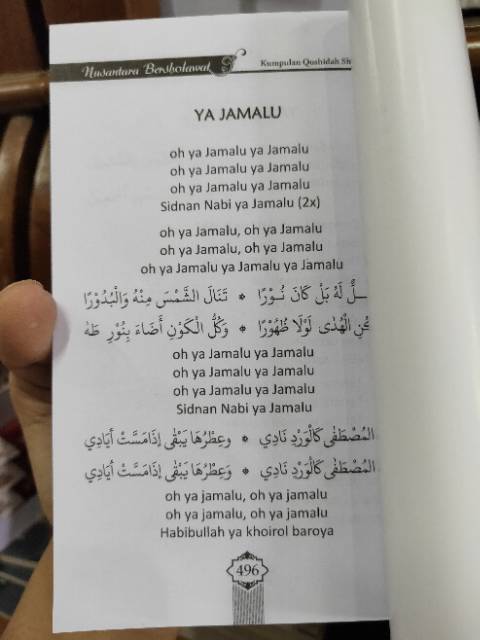 Nusantara Bersholawat
Kumpulan Qoshidah Sh
YA JAMALU
oh ya Jamalu ya Jamalu
oh ya Jamalu ya Jamalu
oh ya Jamalu ya Jamalu
Sidnan Nabi ya Jamalu (2x)
oh ya Jamalu, oh ya Jamalu
oh ya Jamalu, oh ya Jamalu
oh ya Jamalu ya Jamalu ya Jamalu
لٌّ لَهُ بَلْ كَانَ نُـوْرًا * تَنَالَ الشَّمْسَ مِنْهُ وَالْبُدُوْرًا
الْهُدٰى لَوْلَا ظُهُوْرًا * وَكُلُّ الْكَوْنِ أَضَاءَ بِنُوْرِ طٰهَ
oh ya Jamalu ya Jamalu
oh ya Jamalu ya Jamalu
oh ya Jamalu ya Jamalu
Sidnan Nabi ya Jamalu
المُصْطَفٰى كَالْوَرْدِ نَادِي * وَعِطْرُهَا يَبْقٰى إِذَامَسَّتْ أَيَادِي
المُصْطَفٰى كَالْوَرْدِ نَادِي * وَعِطْرُهَا يَبْقٰى إِذَامَسَّتْ أَيَادِي
oh ya jamalu, oh ya jamalu
oh ya jamalu, oh ya jamalu
Habibullah ya khoirol baroya
496